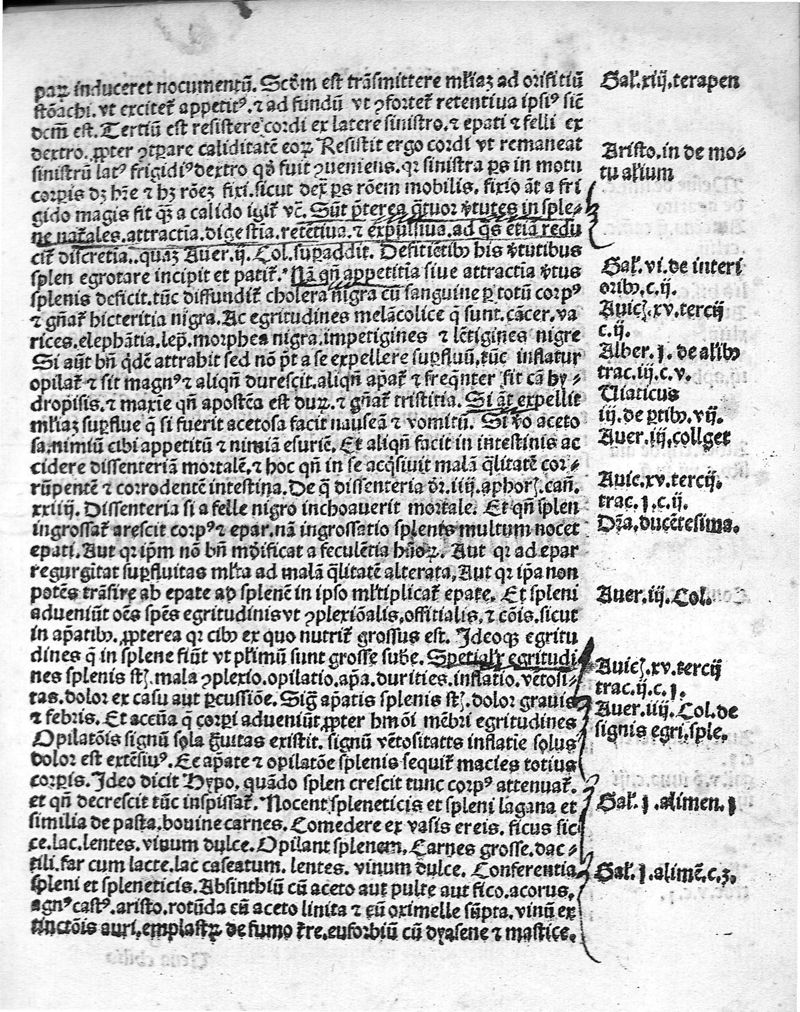 par induceret nocumentū. Scd̄m est trāsmittere mł̄iaz ad orifitiū
stōachi. vt excitet̄ appetitꝰ. ⁊ ad fundū vt ꝯfortet̄ retentiua ipsiꝰ sic̄
dcm̄ est. Tertiū est resistere cordi ex latere sinistro. ⁊ epati ⁊ felli ex
dextro. ꝓpter ꝯtrare caliditatē eoꝝ Resistit ergo cordi vt remaneat
sinistrū latꝰ frigidiꝰ dextro qđ fuit ꝯueniens. qr sinistra ps̄ in motu
corpis dꝫ hr̄e ⁊ hꝫ rōez fixi. sicut dex̄ ps̄ rōem mobilis, fixio āt a fri
gido magis fit q̄ȝ a calido igit̄ vc̄. Sūt p̄terea q̄tuor v̄tutes in sple⸗
ne nat̄ales. attractīa. digestīa. retētiua. ⁊ expulsiua. ad q̄s etiā redu
cit̄ discretīa.. quaz Auer. ij. Col. supaddit. Defitiētibꝰ his v̄tutibus
splen egrotare incipit et patit̄. Nā qn̄ appetitīa siue attractīa v̄tus
splenis deficit. tūc diffundit̄ cholera nigra cū sanguine p totū corpꝰ
⁊ gn̄at̄ hicteritia nigra. Ac egritudines melācolice q̄ sunt. cācer. va
rices. elephātia. lep̄. morphea nigra. impetigines ⁊ lētigines nigre
Si aūt hn̄ qđē attrahit sed nō pt̄ a se expellere supfluū, tūc inflatur
opilat̄ ⁊ fit magnꝰ ⁊ aliqn̄ durescit. aliqn̄ apat̄ ⁊ freq̄nter fit cā hy⸗
dropisis. ⁊ maxīe qn̄ apostēa est duꝝ. ⁊ gn̄at̄ tristitia. Si āt expellit
mł̄iaz supflue q̄ si fuerit acetosa facit nauseā ⁊ vomitū. Si v̄o aceto
sa. nimiū cibi appetitū ⁊ nimiā esuriē. Et aliqn̄ facit in intestinis ac
cidere dissenteriā mortalē. ⁊ hoc qn̄ in se acq̄siuit malā q̄litatē cor⸗
rūpentē ⁊ corrodentē intestina. De q̄ dissenteria dr̄. iiij. aphor. cañ.
xxiiij. Dissenteria si a felle nigro inchoauerit mortale. Et qn̄ splen
ingrossat̄ arescit corpꝰ ⁊ epar. nā ingrossatio splenis multum nocet
epati. Aut qr ipm̄ nō bn̄ mōificat a feculētia hūoꝝ. Aut qr ad epar
regurgitat supfluitas mł̄ta ad malā q̄litatē alterata, Aut qr ipa non
potēs trāsire ab epate ad splenē in ipso mł̄tiplicat̄ epate. Et spleni
adueniūt oēs spēs egritudinis vt ꝯplexiōalis, offitialis, ⁊ cōis. sicut
in apatibꝰ. ꝓpterea qr cibꝰ ex quo nutrit̄ grossus est. Ideoqꝫ egritu
dines q̄ in splene fiūt vt plīmū sunt grosse sube. Spetialr̄ egritudi
nes splenis st̄. mala ꝯplexio. opilatio. apa. durities. inflatio. vētosi⸗
tas. dolor ex casu aut pcussiōe. Sig̃ apatis splenis st̄. dolor grauis
⁊ febris. Et accn̄a q̄ corpi adueniūt ꝓpter hmōi mēbri egritudines
Opilatōis signū sola g̃uitas existit. signū vētositatis inflatīe solus
dolor est extēsiuꝰ. Ec apate ⁊ opilatōe splenis sequit̄ macies totius
corpis. Ideo dicit Hypo. quādo splen crescit tunc corpꝰ attenuat̄.
et qn̄ decrescit tūc inspissat̄. Nocent spleneticis et spleni lagana et
similia de pasta. bouine carnes. Comedere ex vasis ereis. ficus sic
ce. lac. lentes. vinum dulce. Opilant splenem, Carnes grosse. dac⸗
tili. far cum lacte. lac caseatum. lentes. vinum dulce. Conferentia
spleni et spleneticis. Absinthiū cū aceto aut pulte aut fico. acorus.
agnꝰ castꝰ. aristo. rotūda cū aceto linita ⁊ cū oximelle sūpta. vinū ex
tinctōis auri. emplastꝝ de fumo t̄re. euforbiū cū dyasene ⁊ mastice.
Gał. xiij. terapen
Aristo. in de mo⸗
tu aīalium
Gał. vi. de interi
oribꝰ. c. ij.
Auic. xv. tercij
c. ij.
Alber. j. de aīalibꝰ
trac. iij. c. v.
Viaticus
iij. de ptibꝰ. vij.
Auer. iij. collget
Auic. xv. tercij.
trac. j. c. ij.
Dr̄a. ducētesima.
Auer. iij. Col.
Auic. xv. tercij
trac. ij. c. j.
Auer. iiij. Col. de
signis egri. sple.
Gał. j. alimen. j
Gał. j. alimē. c. 3.